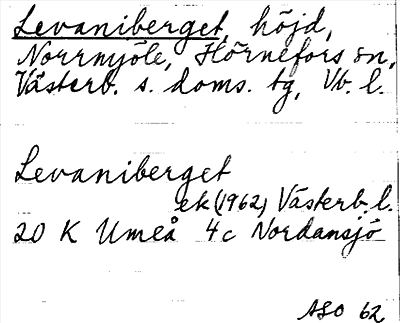 Levaniberget, höjd,
Norrmjöle, Hörnefors sn,
Västerb. s. doms. tg, Vb. l.
Levaniberget
ek (1962) Västerb. l.
20 K Umeå 4c Nordansjö
ASO 62